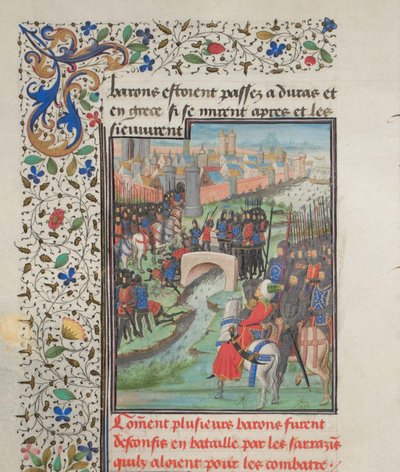 barons estoient passez a duras et
en grece si se mirent apres et les
sieuuirent
Coment plusieurs barons furent
desconfis en bataille par les sarrazins
quilz aloient pour les combatre.